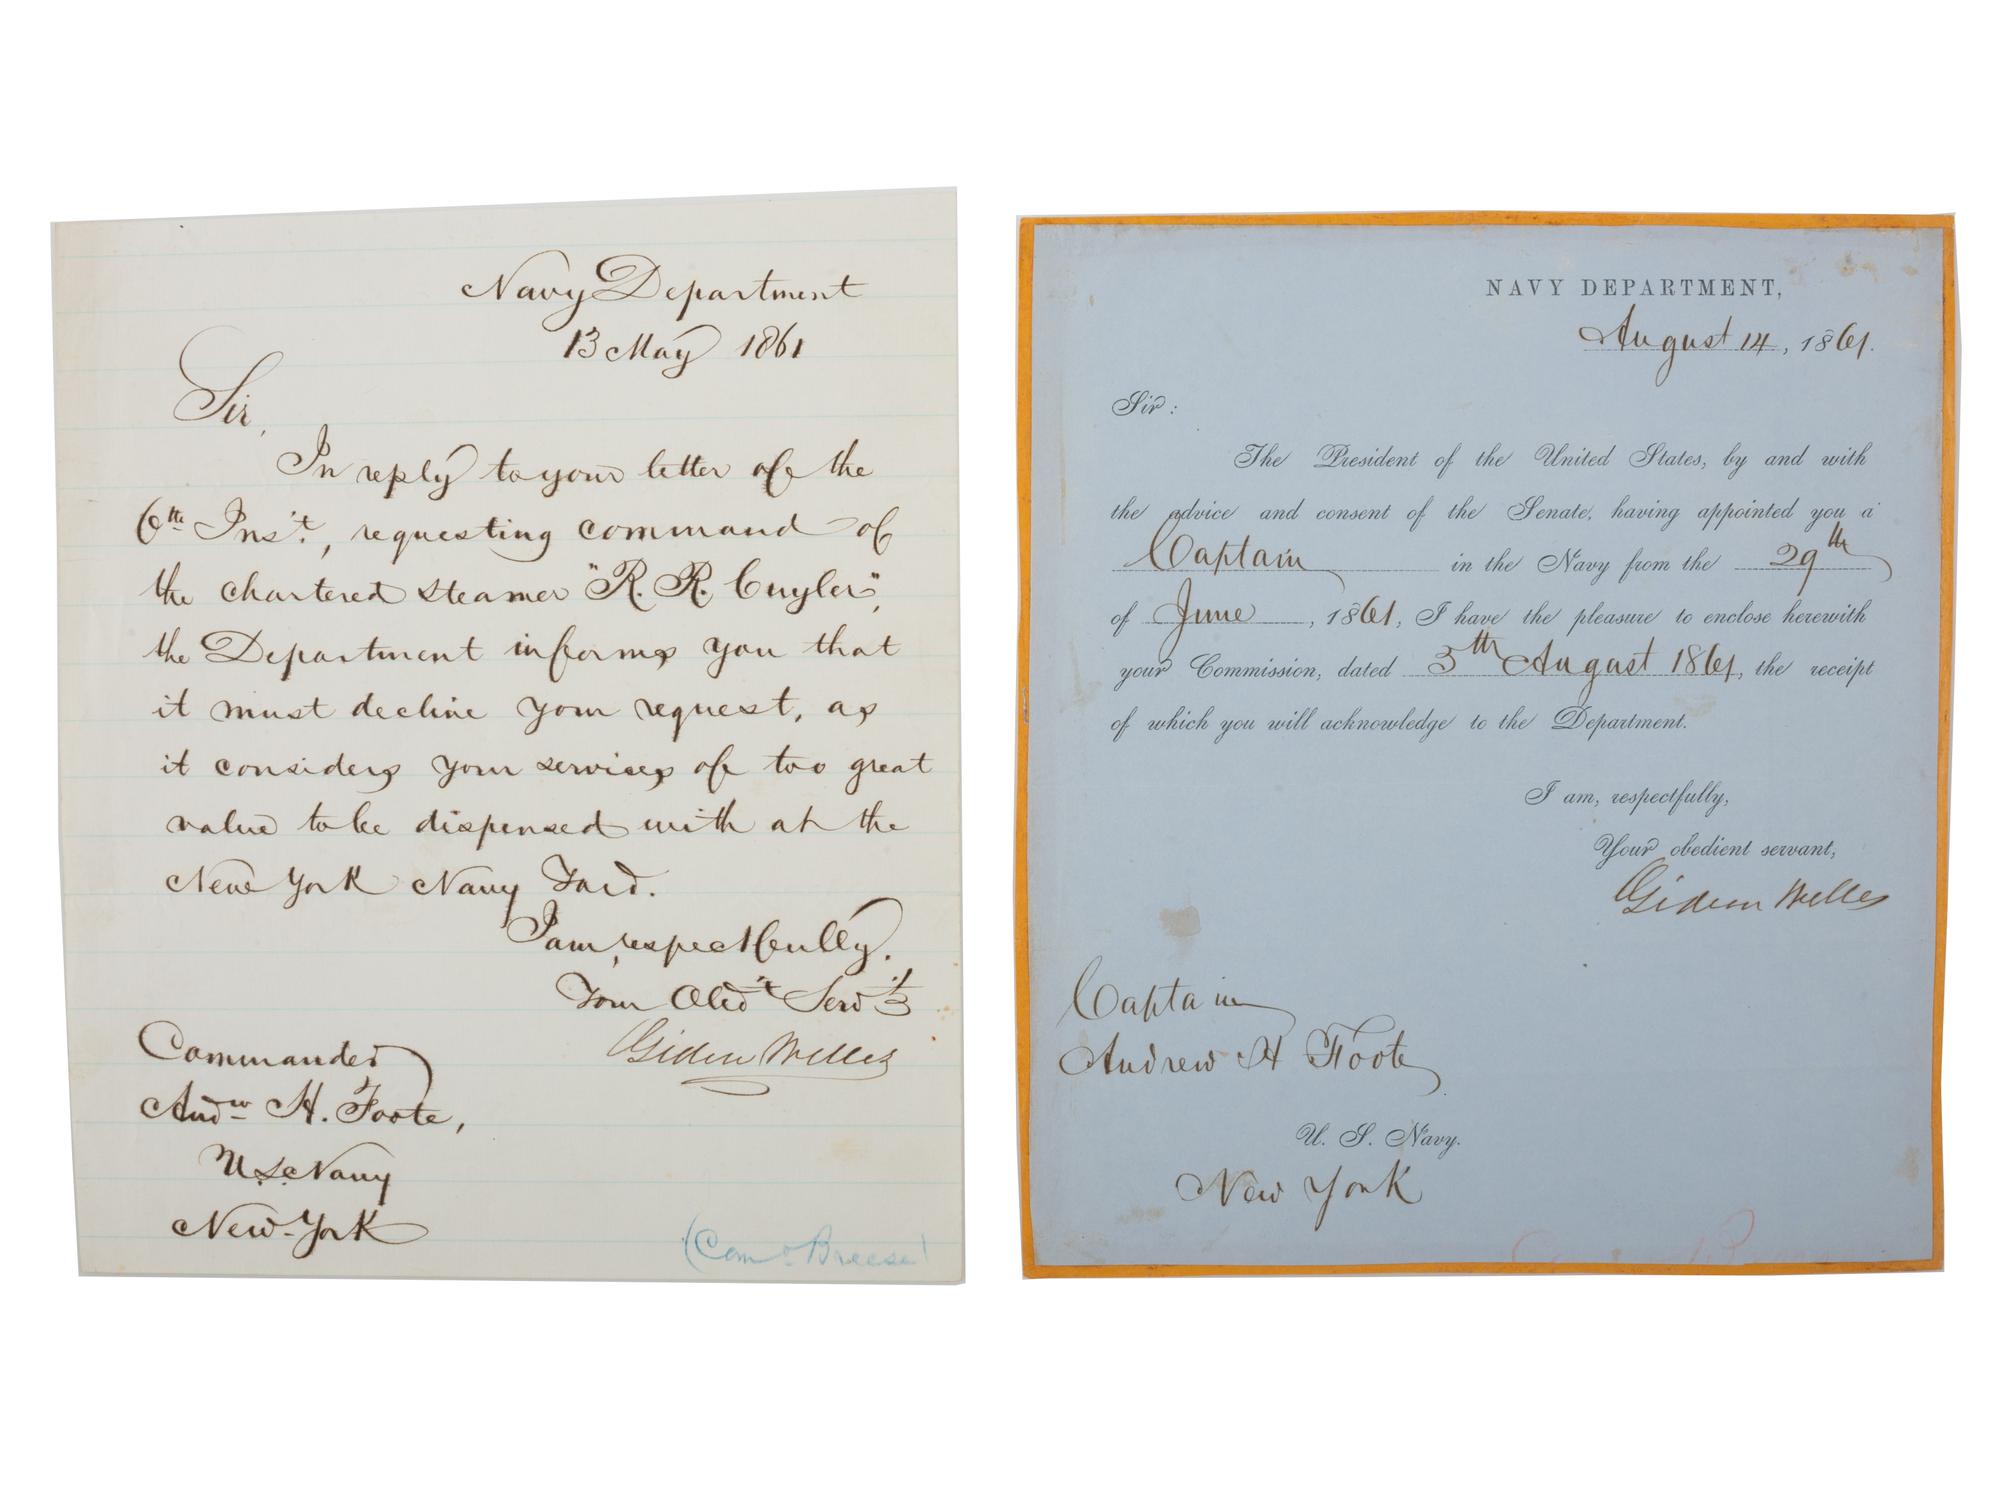 Navy Department
13 May 1861
Sir,
In reply to your letter of the
6th Ins't, requesting command of
the chartered steamer "R. R. Cuyler",
the Department informs you that
it must decline your request, as
it considers your services of too great
value to be dispensed with at the
New York Navy Yard.
I am, respectfully,
Your Obed't Serv't
Gideon Welles
Commander
Andw H. Foote,
U.S. Navy
New-York
(Como Breese)
NAVY DEPARTMENT,
August 14, 1861.
Sir:
The President of the United States, by and with
the advice and consent of the Senate, having appointed you a
Captain in the Navy from the 29th
of June, 1861, I have the pleasure to enclose herewith
your Commission, dated 5th August 1861, the receipt
of which you will acknowledge to the Department.
I am, respectfully,
Your obedient servant,
Gideon Welles
Captain
Andrew H Foote
U. S. Navy.
New York